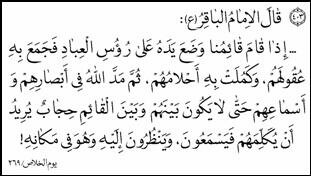 ٤٠٣
قَالَ الإِمَامُ البَاقِرُ (ع):
... إِذَا قَامَ قَائِمُنَا وَضَعَ يَدَهُ عَلَى رُؤُسِ الْعِبَادِ فَجَمَعَ بِهِ
عُقُولَهُمْ، وَكَمُلَتْ بِهِ أَحْلَامُهُمْ، ثُمَّ مَدَّ اللّهُ فِي أَبْصَارِهِمْ وَ
أَسْمَاعِهِمْ حَتَّى لَا يَكُونَ بَيْنَهُمْ وَبَيْنَ الْقَائِمِ حِجَابٌ يُرِيدُ
أَنْ يُكَلِّمَهُمْ فَيَسْمَعُونَ، وَيَنْظُرُونَ إِلَيْهِ وَهُوَ فِي مَكَانِهِ!
يوم الخلاص/٢٦٩